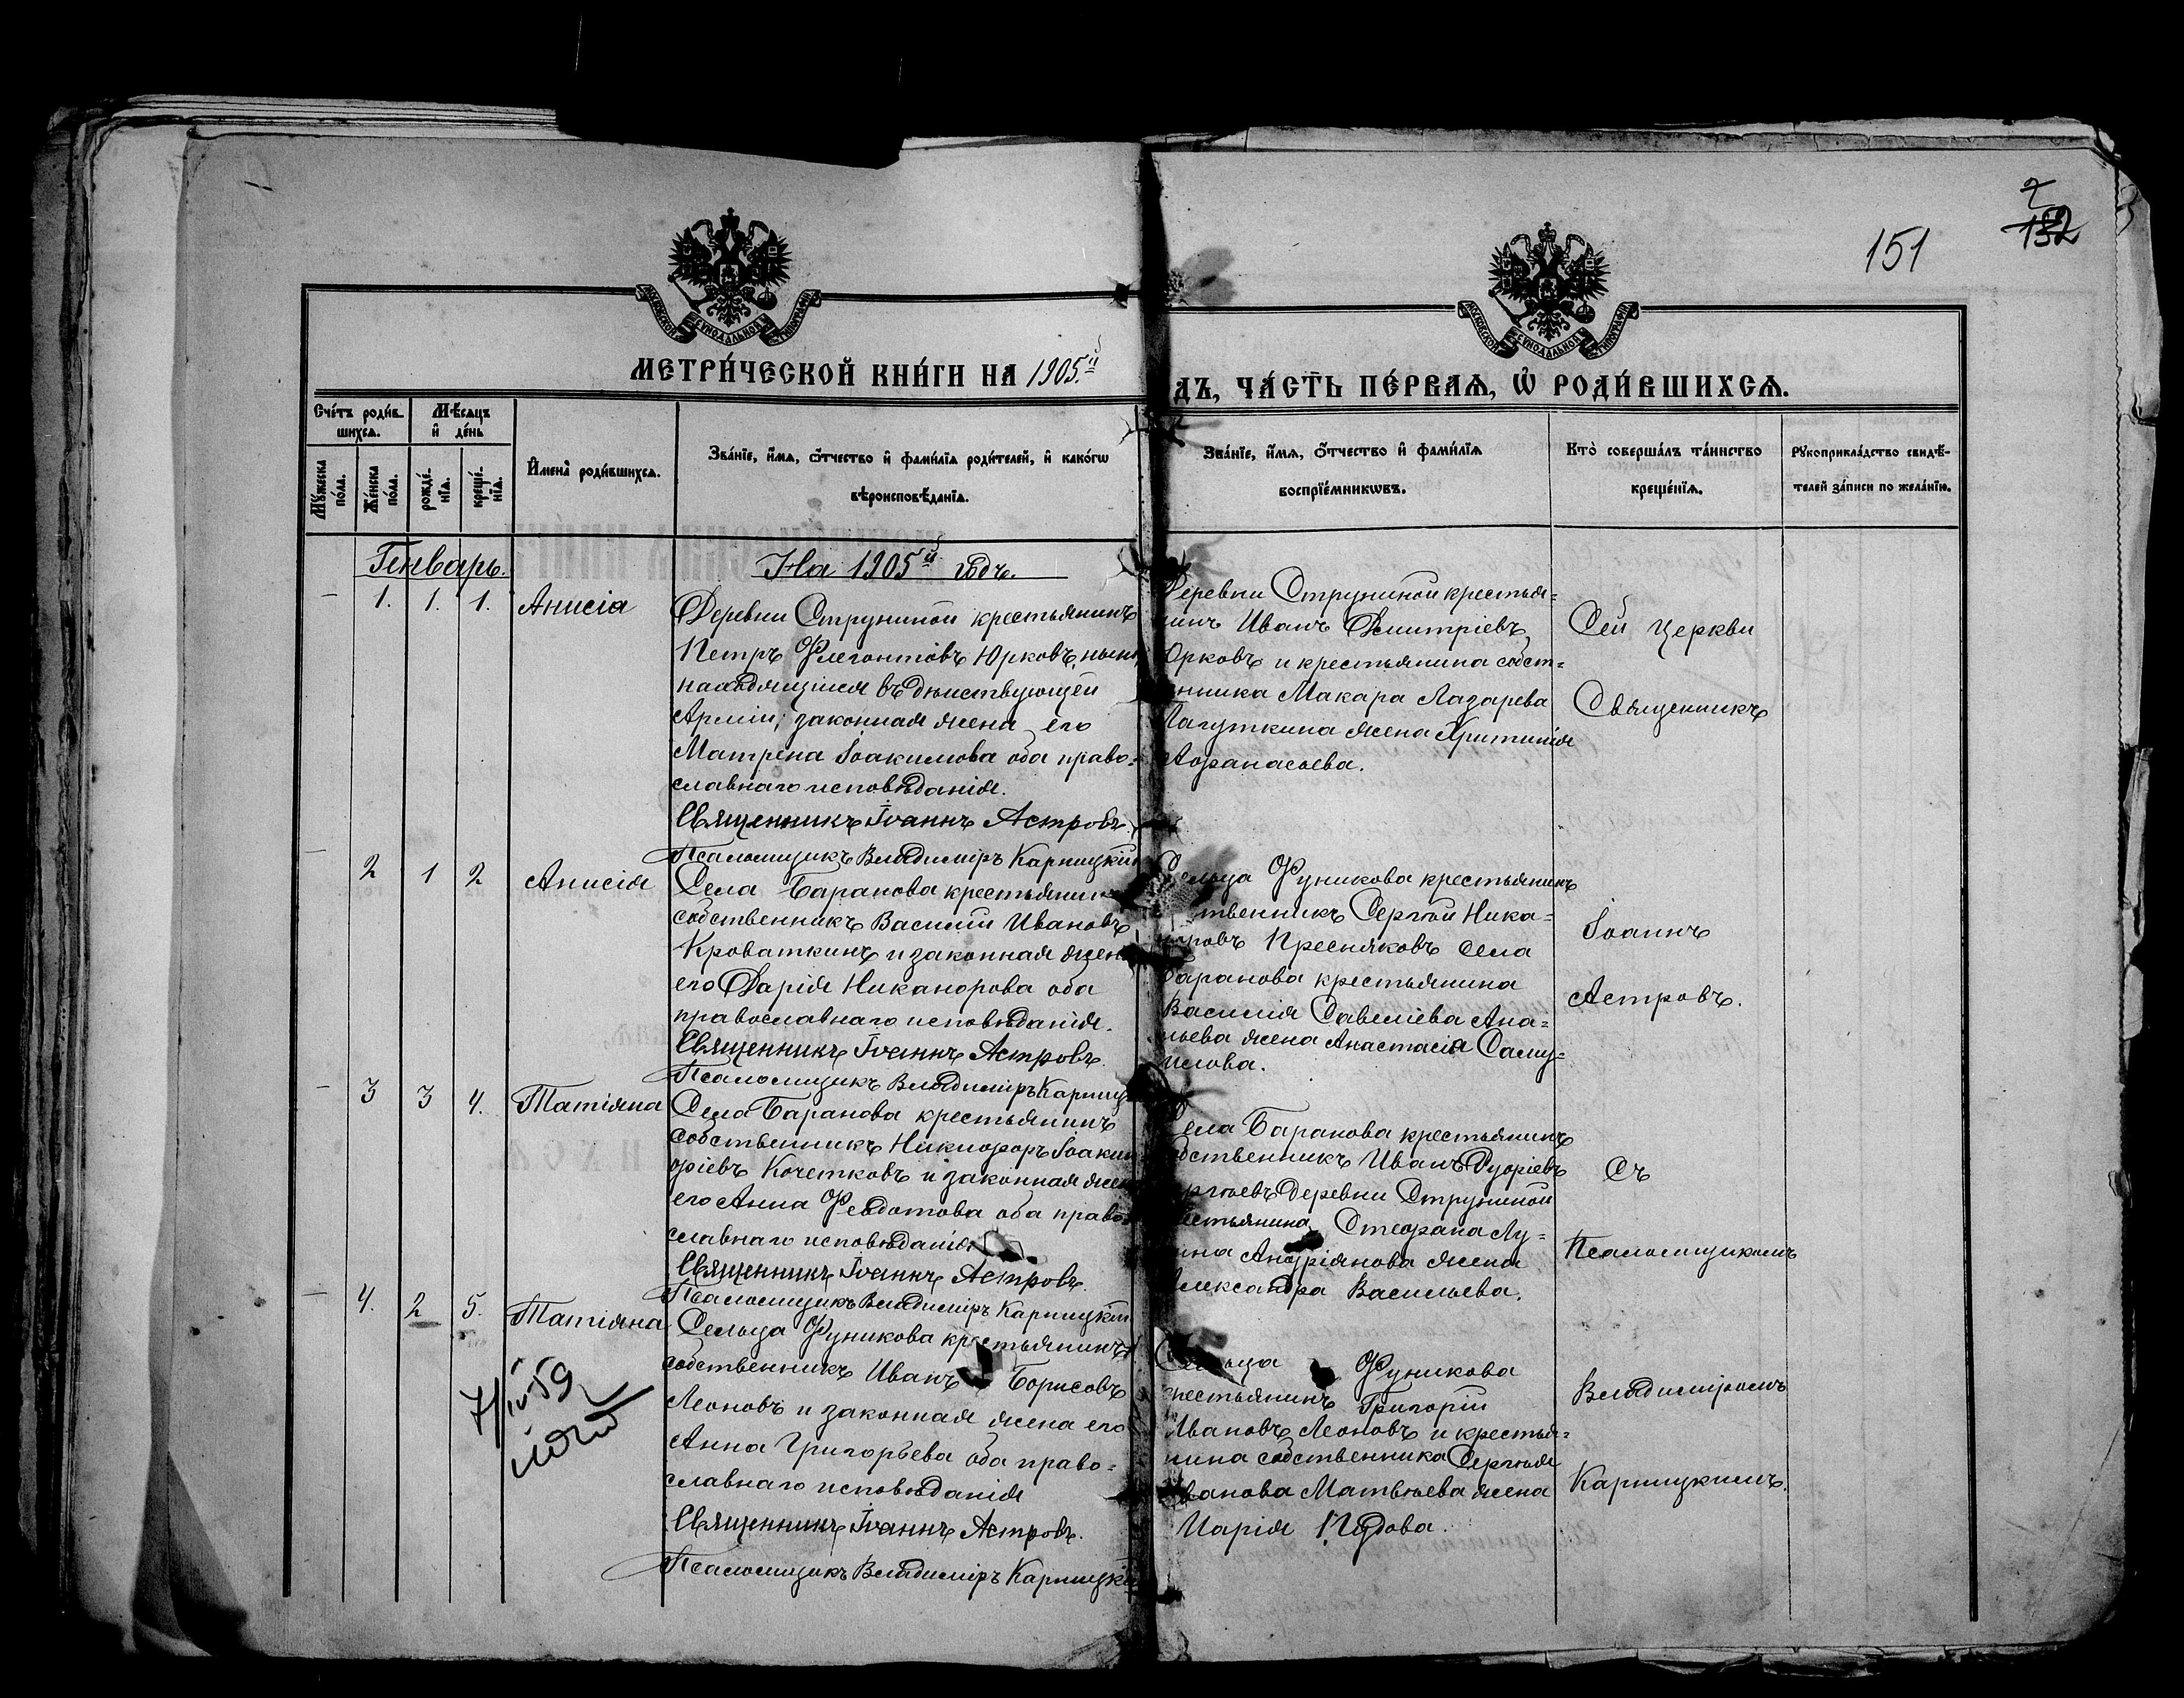 151
2
132
МЕТРИ́ЧЕСКОЙ КНИ́ГИ НА 1905й
ДЪ, ЧА́СТЬ ПЕ́РВАЯ, Ѡ РОДИ́ВШИХСЯ.
Сче́тъ роди́в-
шихся.
Мꙋ́жеска по́ла.
Же́нска по́ла.
Мѣ́сяцъ
и де́нь
рожде́-
нїя.
креще́-
нїя.
И҆мена̀ роди́вшихся.
Зва́нїе, и҆́мя, ѻ҆́тчество и҆ фами́лїя роди́телей, и҆ како́гѡ
вѣроисповѣ́данїя.
Зва́нїе, и҆́мя, ѻ҆́тчество и҆ фами́лїя
воспрїе́мникѡвъ.
Кто̀ соверша́лъ та́инство
креще́нїя.
Рꙋкоприкла́дство свидѣ́-
телей за́писи по жела́нїю.
Генварь.
На 1905й годъ.
- 1. 1. 1. Анисія
Деревни Струниной крестьянинъ
Петръ Флегонтовъ Юрковъ, нынѣ
находящійся въ дѣйствующей
Арміи; законная жена его
Матрена Іоакимова оба право-
славнаго исповѣданія.
Священникъ Іоаннъ Астровъ.
Псаломщикъ Владиміръ Карпицкій
Деревни Струниной крестья-
нинъ Иванъ Димитріевъ
Юрковъ и крестьянина собст-
нника Макара Лазарева
Лагуткина жена Хритинія
Аѳанасьева.
- 2 1 2 Анисія
Села Баранова крестьянинъ
собственникъ Василій Ивановъ
Кроваткинъ и законная жена
его Дарія Никанорова оба
православнаго исповѣданія.
Священникъ Іоаннъ Астровъ.
Псаломщикъ Владиміръ Карпиц
Сельца Фуникова крестьянинъ
твенникъ Сергѣй Ника-
норовъ Пресняковъ села
Баранова крестьянина
Василія Савеліева Ана-
ньева жена Анастасія Саму-
илова.
- 3 3 4. Татіяна
Села Баранова крестьянинъ
собственникъ Никифоръ Іоаким
фіевъ Кочетковъ и законная жена
его Анна Ѳеодотова оба право-
славнаго исповѣданія
Священникъ Іоаннъ Астровъ.
Псаломщикъ Владиміръ Карпицкій
Села Баранова крестьянинъ
обственникъ Иванъ
ргѣевъ деревни Струниной
естьянина Стефана Лу-
ина Андріянова жена
лександра Васильева.
- 4. 2 5. Татіяна
Сельца Фуникова крестьянинъ
собственникъ Иванъ Борисовъ
Леоновъ и законная жена его
Анна Григорьева оба право-
славнаго исповѣданія
Священникъ Іоаннъ Астровъ.
Псаломщикъ Владиміръ Карпицкі
Сельца Фуникова
рестьянинъ Григорій
Ивановъ Леоновъ и крестья-
нина собственника Сергѣя
Иванова Матвѣева жена
Марія
7/IV-59
Сей церкви
Священникъ
Іоаннъ
Астровъ.
Съ
Псаломщикомъ
Владиміромъ
Карпицкимъ.